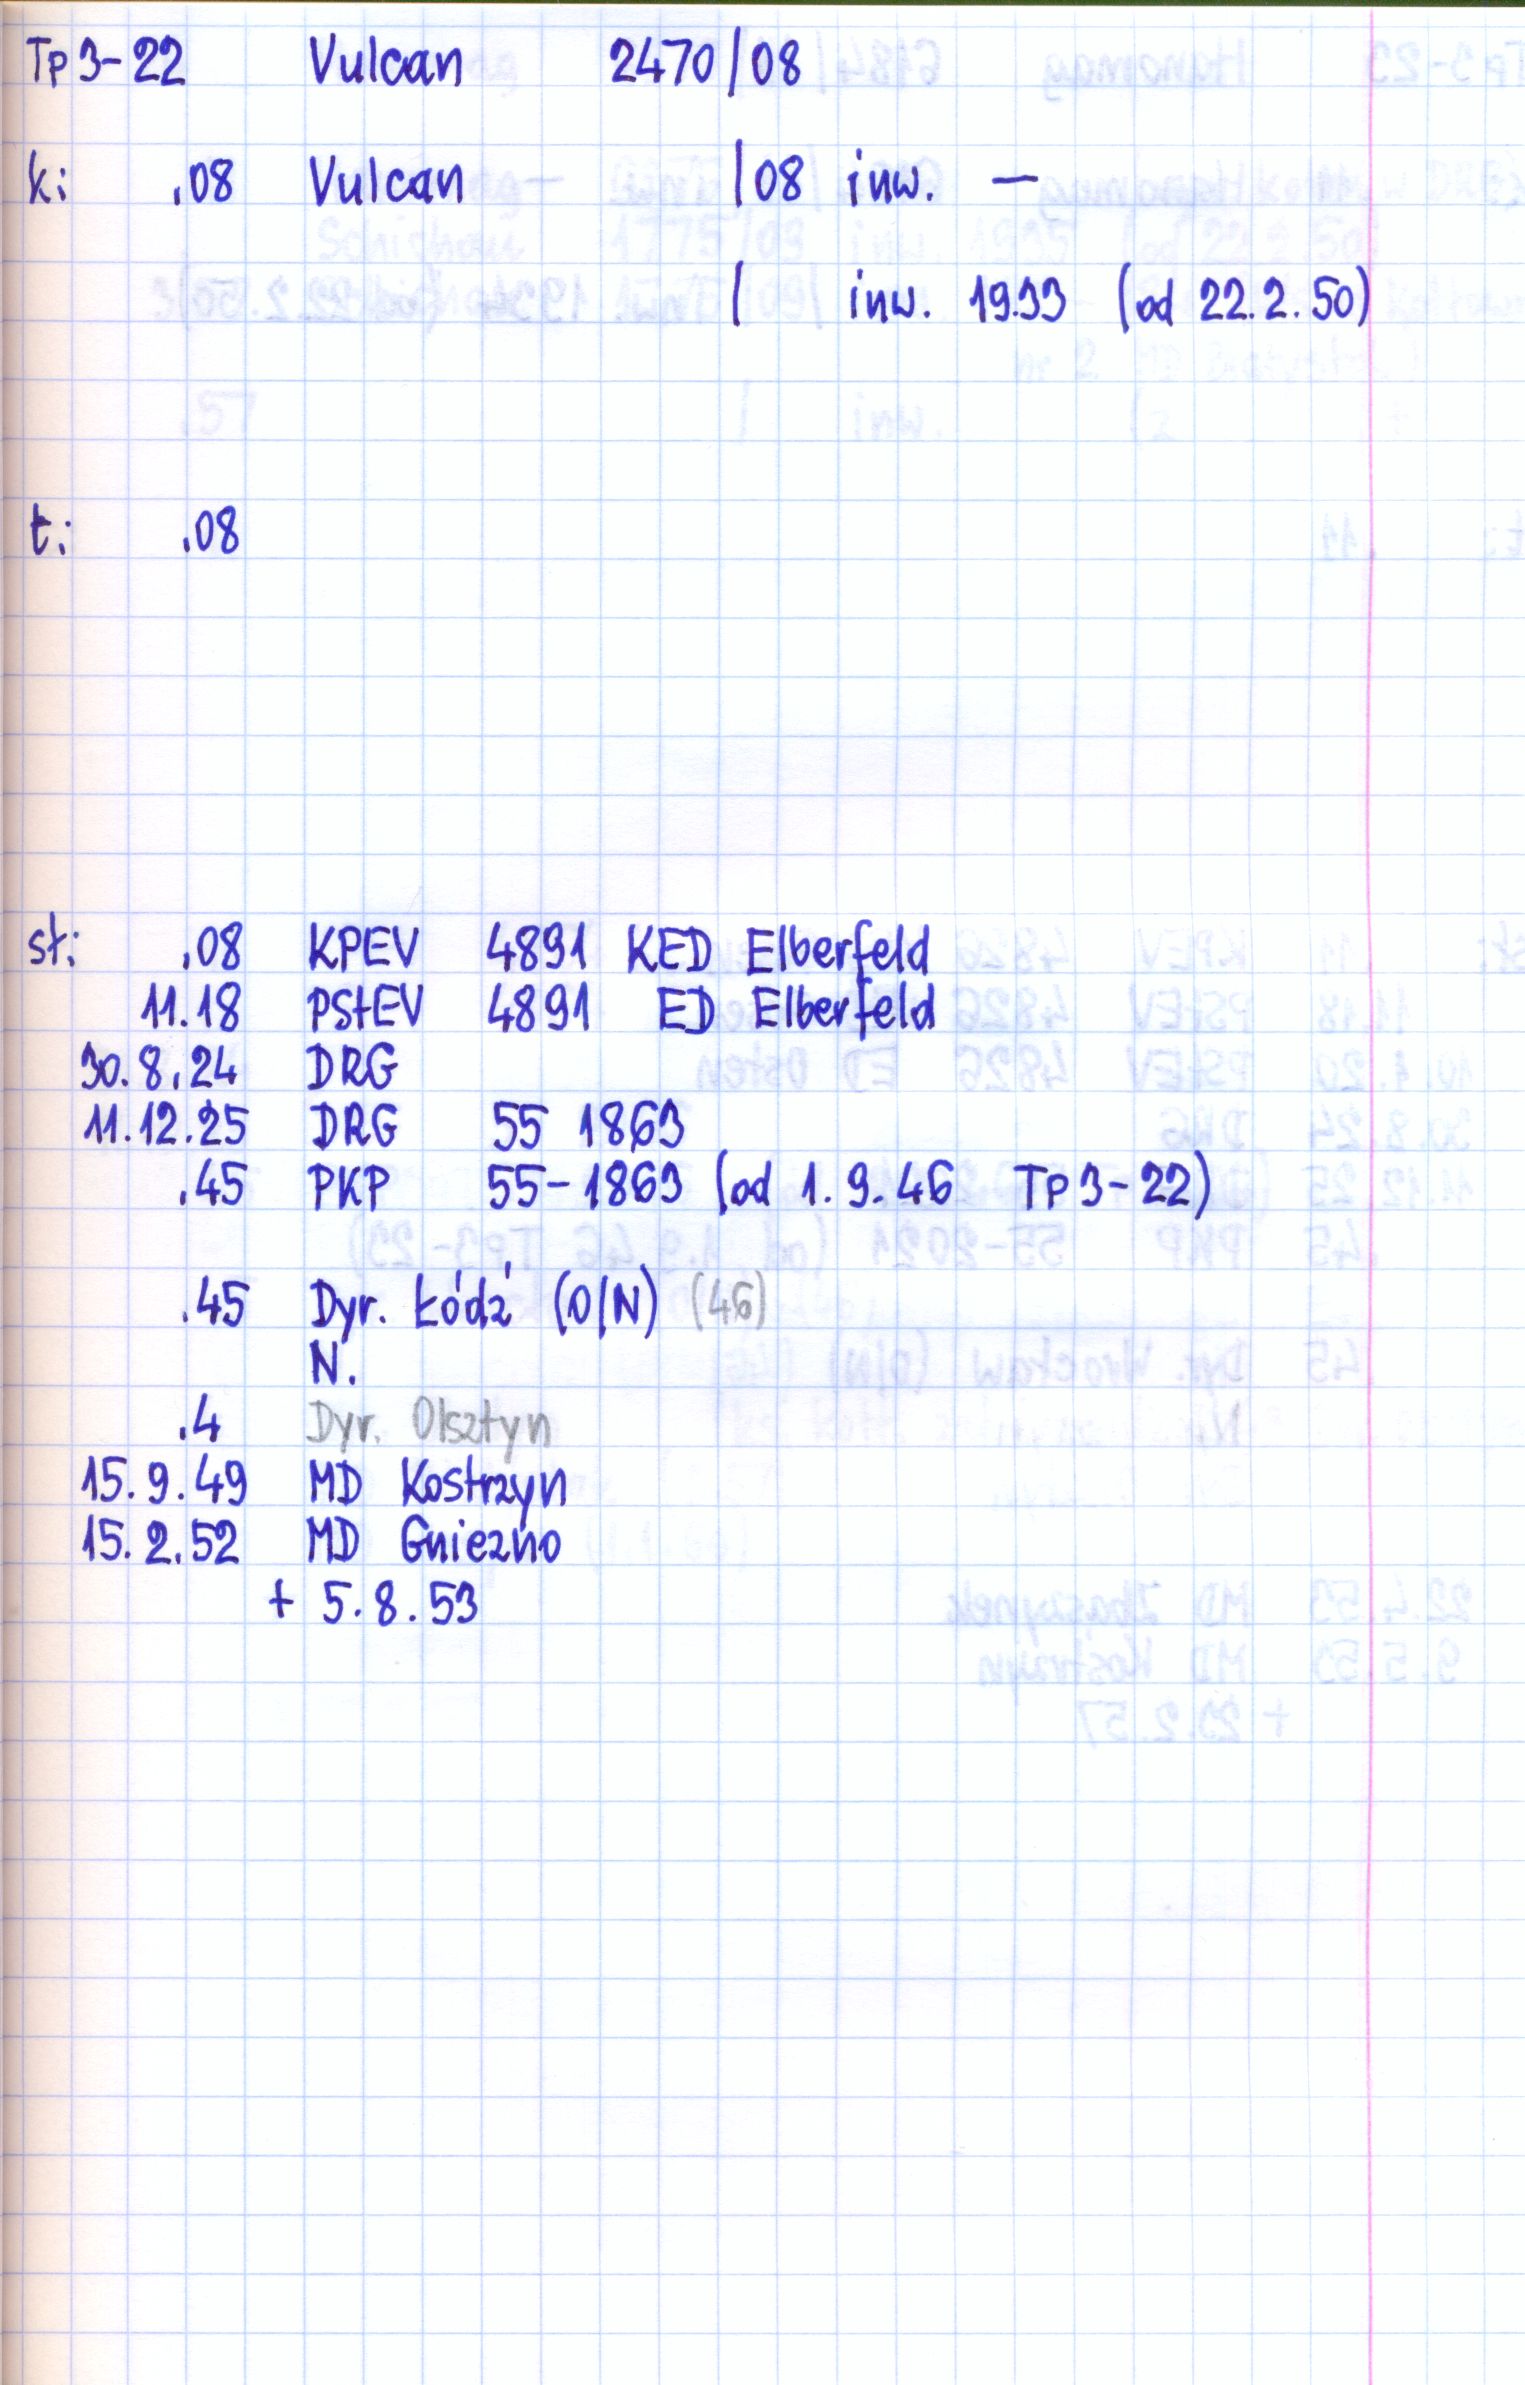 Tp3-22 Vulcan 2470/08
k: .08 Vulcan /08 inw. —
/ inw. 1933 (od 22.2.50)
t: .08
st: .08 KPEV 4891 KED Elberfeld
11.18 PStEV 4891 ED Elberfeld
30.8.24 DRG
11.12.25 DRG 55 1863
.45 PKP 55-1863 (od 1.9.46 Tp3-22)
.45 Dyr. Łódź (O/N) (46)
N.
.4 Dyr. Olsztyn
15.9.49 MD Kostrzyn
15.2.52 MD Gniezno
+ 5.8.53